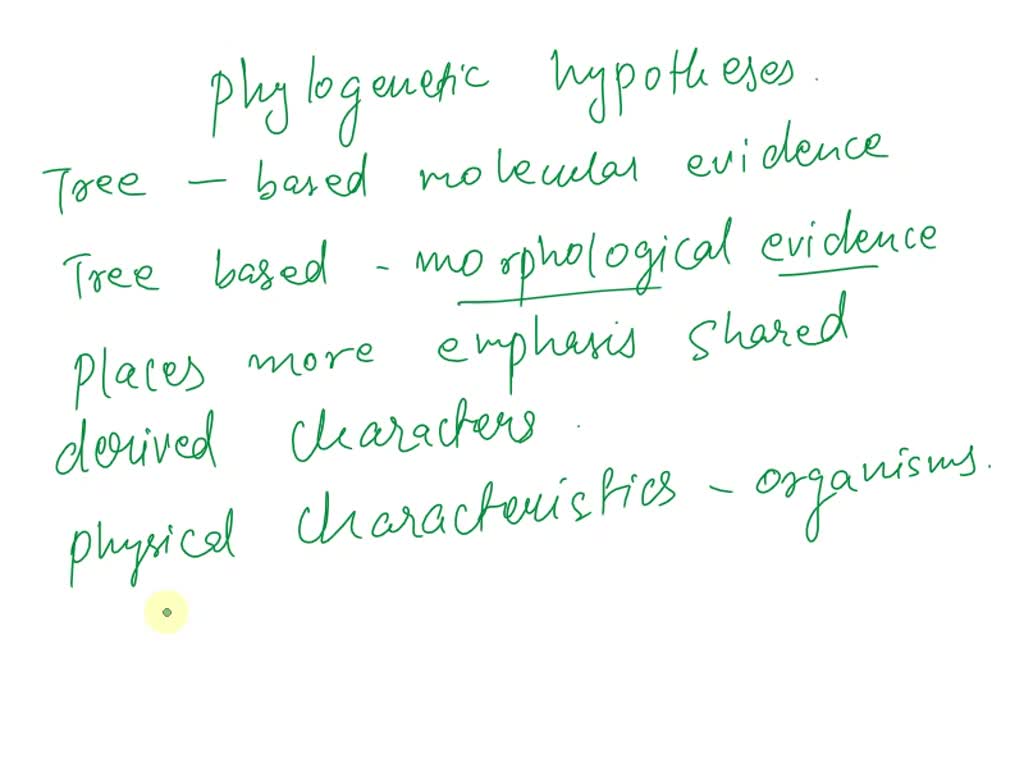 Phylogenetic hypotheses.
Tree - based molecular evidence
Tree based - morphological evidence
Places more emphasis shared
derived characters.
physical characteristics - organisms.